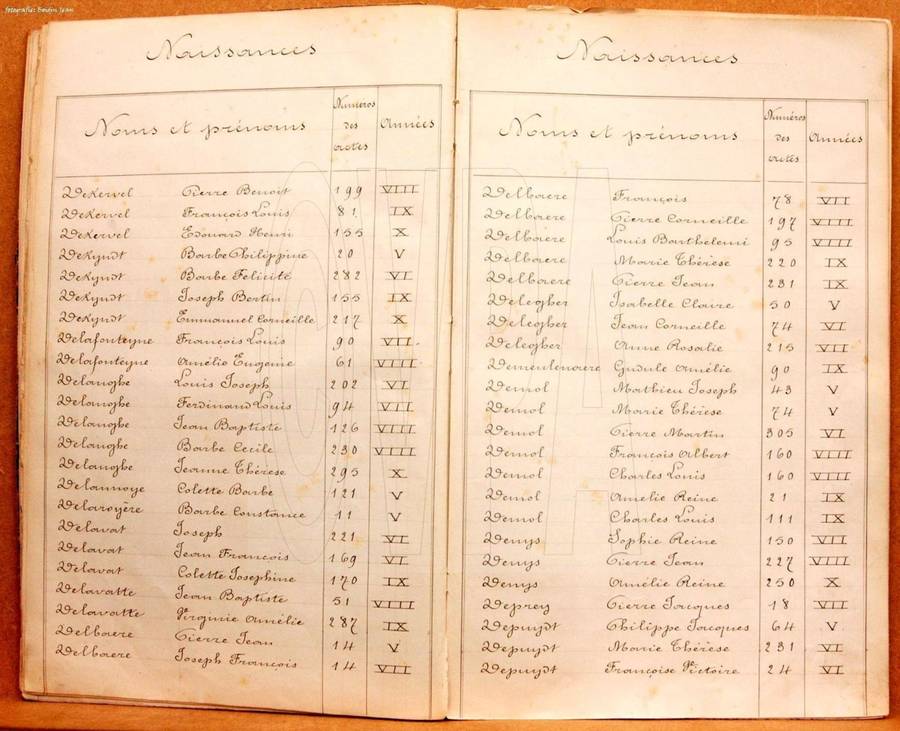 fotografie: Boidin Jean
Naissances
Noms et prénoms Numéros des actes Années
Dekervel Pierre Benoit 199 VIII
Dekervel François Louis 81 IX
Dekervel Edouard Henri 155 X
Dekyndt Barbe Philippine 20 V
Dekyndt Barbe Felicité 282 VI
Dekyndt Joseph Bertin 155 IX
Dekyndt Emmanuel Corneille 217 X
Delafonteyne François Louis 90 VII
Delafonteyne Amélie Eugenie 61 VIII
Delanghe Louis Joseph 202 VI
Delanghe Ferdinand Louis 94 VII
Delanghe Jean Baptiste 126 VIII
Delanghe Barbe Cecile 230 VIII
Delanghe Jeanne Thérèse 295 X
Delannoye Colette Barbe 121 V
Delaroyère Barbe Constance 11 V
Delavat Joseph 221 VI
Delavat Jean François 169 VI
Delavat Colette Josephine 170 IX
Delavatte Jean Baptiste 51 VIII
Delavatte Virginie Amélie 287 IX
Delbaere Pierre Jean 14 V
Delbaere Joseph François 14 VII
Naissances
Noms et prénoms Numéros des actes Années
Delbaere François 78 VII
Delbaere Pierre Corneille 197 VIII
Delbaere Louis Barthelemi 95 VIII
Delbaere Marie Thérèse 220 IX
Delbaere Pierre Jean 231 IX
Delegher Isabelle Claire 50 V
Delegher Jean Corneille 74 VI
Delegher Anne Rosalie 215 VII
Demeulenaere Gudule Amélie 90 IX
Demol Mathieu Joseph 43 V
Demol Marie Thérèse 74 V
Demol Pierre Martin 305 VI
Demol François Albert 160 VIII
Demol Charles Louis 160 VIII
Demol Amelie Reine 21 IX
Demol Charles Louis 111 IX
Denys Sophie Reine 150 VII
Denys Pierre Jean 227 VIII
Denys Amélie Reine 250 X
Deprey Pierre Jacques 18 VII
Depuydt Philippe Jacques 64 V
Depuydt Marie Thérèse 231 VI
Depuydt Françoise Victoire 24 VI